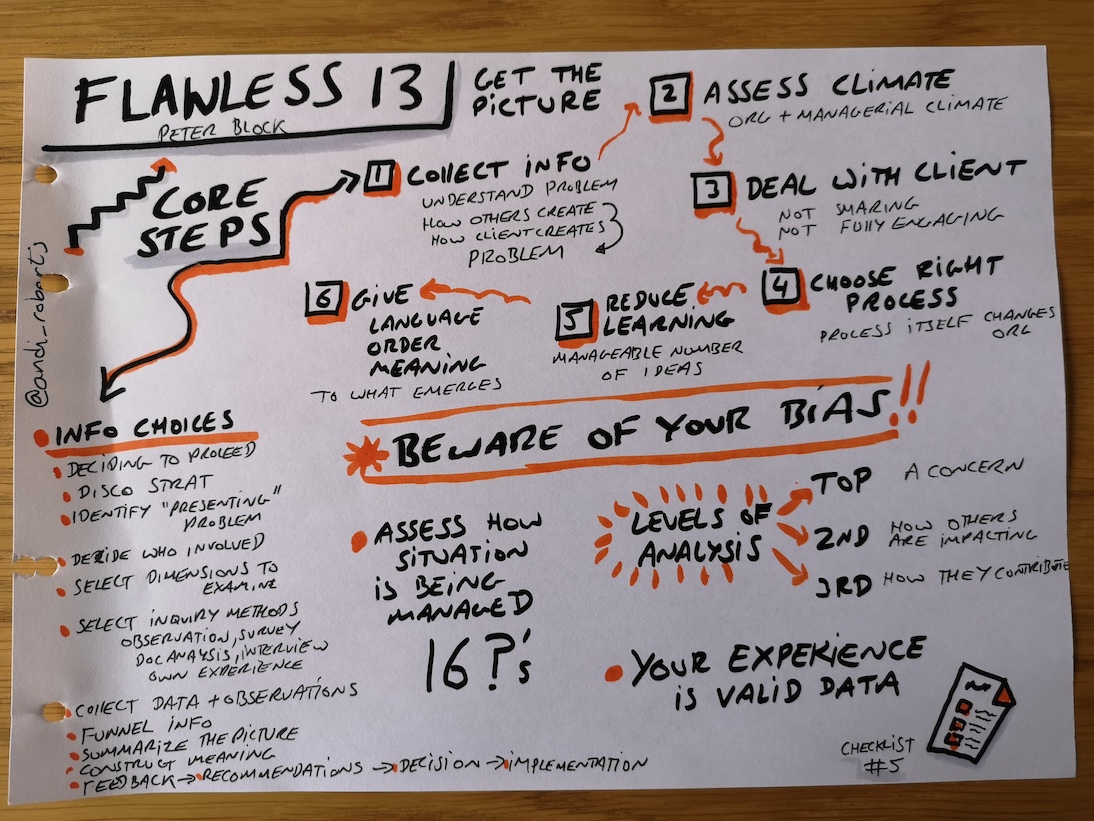 FLAWLESS 13
PETER BLOCK
GET THE
PICTURE
CORE
STEPS
@andi_robertj
1 COLLECT INFO
UNDERSTAND PROBLEM
HOW OTHERS CREATE
HOW CLIENT CREATES
PROBLEM
2 ASSESS CLIMATE
ORG + MANAGERIAL CLIMATE
3 DEAL WITH CLIENT
NOT SHARING
NOT FULLY ENGAGING
4 CHOOSE RIGHT
PROCESS
PROCESS ITSELF CHANGES
ORG
5 REDUCE
LEARNING
MANAGEABLE NUMBER
OF IDEAS
6 GIVE
LANGUAGE
ORDER
MEANING
TO WHAT EMERGES
BEWARE OF YOUR BIAS!!
INFO CHOICES
DECIDING TO PROCEED
DISCO STRAT
IDENTIFY "PRESENTING"
PROBLEM
DECIDE WHO INVOLVED
SELECT DIMENSIONS TO
EXAMINE
SELECT INQUIRY METHODS
OBSERVATION, SURVEY
DOC ANALYSIS, INTERVIEW
OWN EXPERIENCE
COLLECT DATA + OBSERVATIONS
FUNNEL INFO
SUMMARIZE THE PICTURE
CONSTRUCT MEANING
FEEDBACK → RECOMMENDATIONS → DECISION → IMPLEMENTATION
ASSESS HOW
SITUATION
IS BEING
MANAGED
16 ?'s
LEVELS OF
ANALYSIS
TOP A CONCERN
2ND HOW OTHERS
ARE IMPACTING
3RD HOW THEY CONTRIBUTE
YOUR EXPERIENCE
IS VALID DATA
CHECKLIST
#5